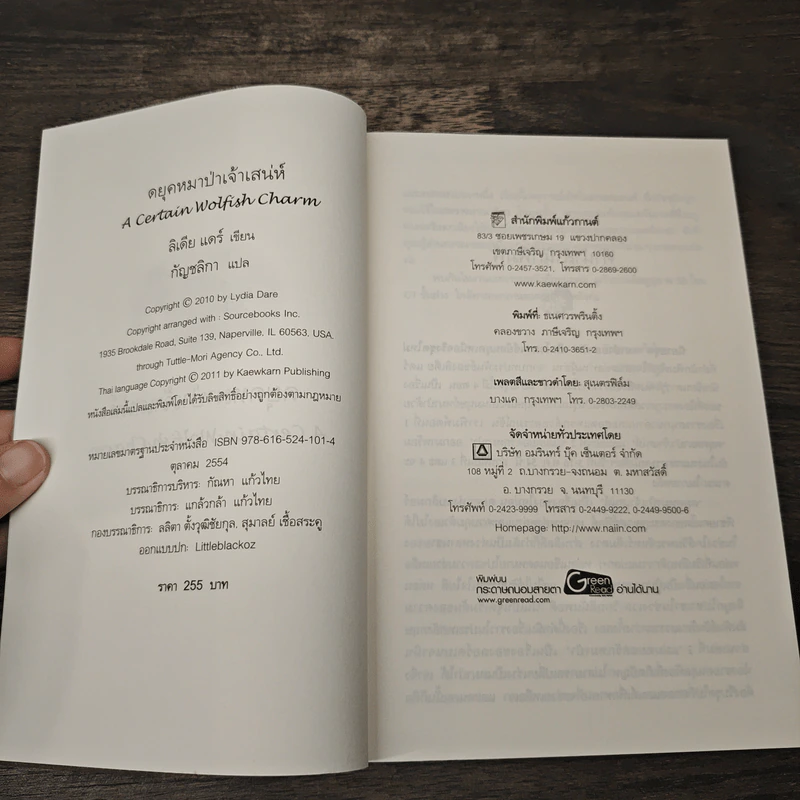 ดยุคหมาป่าเจ้าเสน่ห์
A Certain Wolfish Charm
ลิเดีย แดร์ เขียน
กัญชลิกา แปล
Copyright © 2010 by Lydia Dare
Copyright arranged with : Sourcebooks Inc.
1935 Brookdale Road, Suite 139, Naperville, IL 60563. USA.
through Tuttle-Mori Agency Co., Ltd.
Thai language Copyright © 2011 by Kaewkarn Publishing
หนังสือเล่มนี้แปลและพิมพ์โดยได้รับลิขสิทธิ์อย่างถูกต้องตามกฎหมาย
หมายเลขมาตรฐานประจำหนังสือ ISBN 978-616-524-101-4
ตุลาคม 2554
บรรณาธิการบริหาร: กัณหา แก้วไทย
บรรณาธิการ: แกล้วกล้า แก้วไทย
กองบรรณาธิการ: ลลิตา ตั้งวุฒิชัยกุล, สุมาลย์ เชื้อสระคู
ออกแบบปก: Littleblackoz
ราคา 255 บาท
สำนักพิมพ์แก้วกานต์
83/3 ซอยเพชรเกษม 19 แขวงปากคลอง
เขตภาษีเจริญ กรุงเทพฯ 10160
โทรศัพท์ 0-2457-3521, โทรสาร 0-2869-2600
www.kaewkarn.com
พิมพ์ที่: ธเนศวรพรินติ้ง
คลองขวาง ภาษีเจริญ กรุงเทพฯ
โทร. 0-2410-3651-2
เพลตสีและขาวดำโดย: สุเนตรฟิล์ม
บางแค กรุงเทพฯ โทร. 0-2803-2249
จัดจำหน่ายทั่วประเทศโดย
บริษัท อมรินทร์ บุ๊ค เซ็นเตอร์ จำกัด
108 หมู่ที่ 2 ถ.บางกรวย-จงถนอม ต. มหาสวัสดิ์
อ. บางกรวย จ. นนทบุรี 11130
โทรศัพท์ 0-2423-9999 โทรสาร 0-2449-9222, 0-2449-9500-6
Homepage: http://www.naiin.com
พิมพ์บน
กระดาษถนอมสายตา Green Read อ่านได้นาน
www.greenread.com